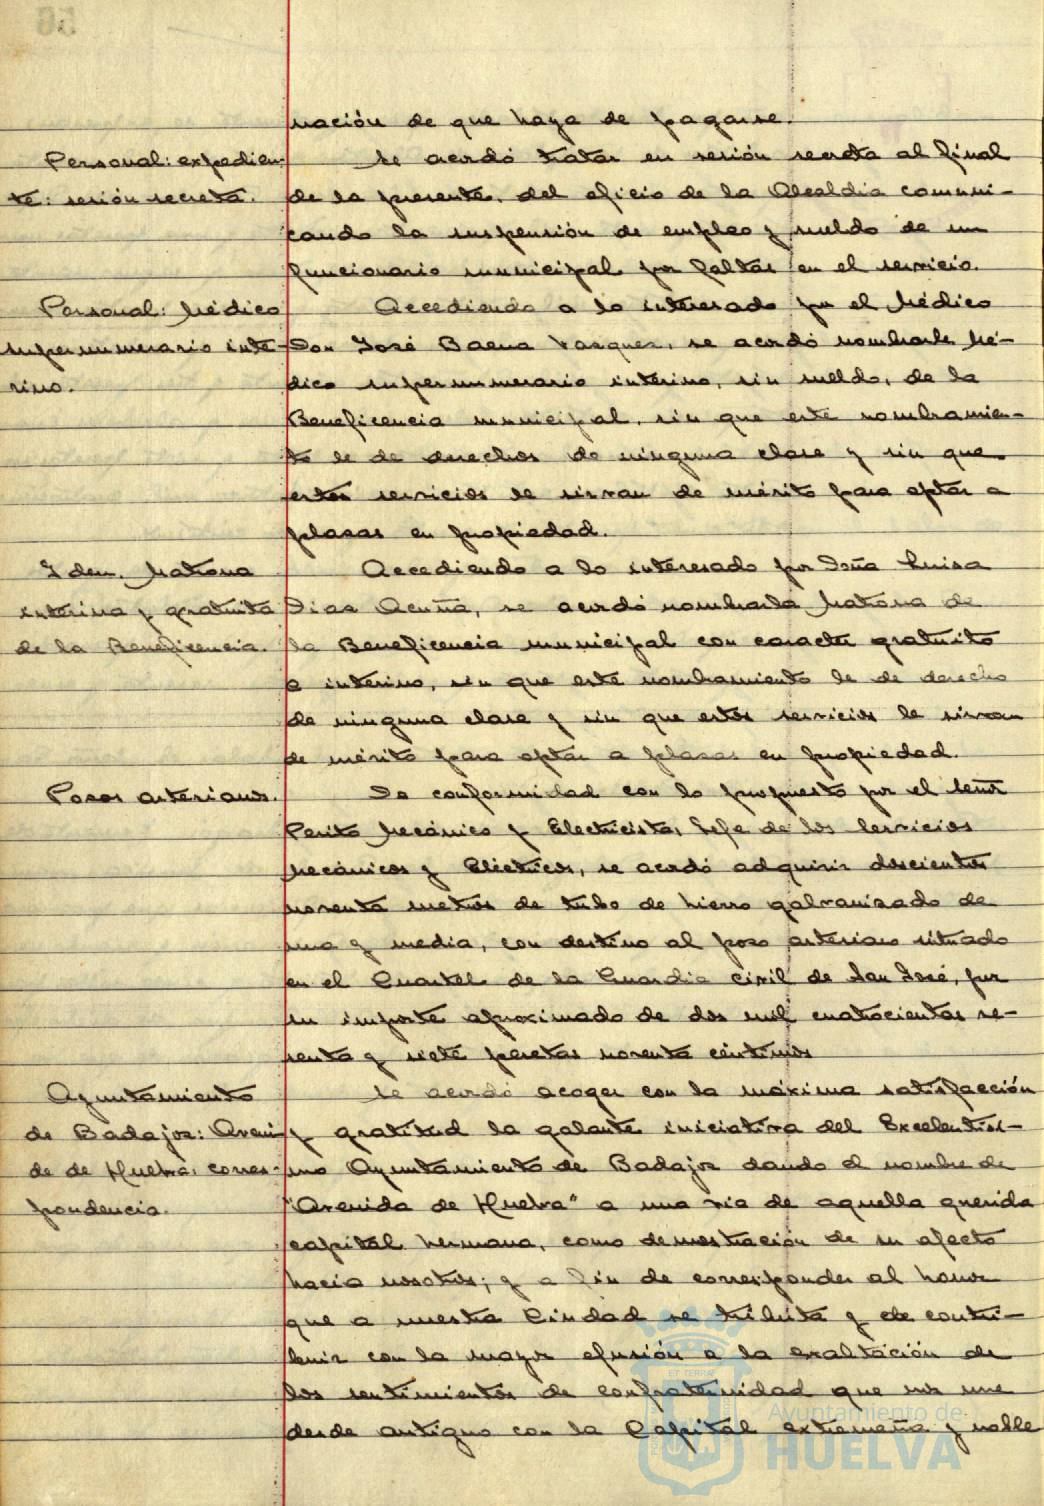 nación de que haya de pagarse.
Personal: expedien-
te: sesión secreta.
Se acordó tratar en sesión secreta al final
de la presente, del oficio de la Alcaldía comuni-
cando la suspensión de empleo y sueldo de un
funcionario municipal por faltas en el servicio.
Personal: Médico
supernumerario inte-
rino.
Accediendo a lo interesado por el Médico
Don José Baena Vasquez, se acordó nombrarle Mé-
dico supernumerario interino, sin sueldo, de la
Beneficencia municipal, sin que este nombramien-
to le de derechos de ninguna clase y sin que
estos servicios le sirvan de mérito para optar a
plazas en propiedad.
Idem. Matrona
interina y gratuita
de la Beneficencia.
Accediendo a lo interesado por Doña Luisa
Dias Acuña, se acordó nombrarla Matrona de
la Beneficencia municipal con caracter gratuito
e interino, sin que este nombramiento le de derecho
de ninguna clase y sin que estos servicios le sirvan
de mérito para optar a plazas en propiedad.
Posos artesianos.
De conformidad con lo propuesto por el señor
Perito Mecánico y Electricista, Jefe de los Servicios
Mecánicos y Eléctricos, se acordó adquirir doscientos
noventa metros de tubo de hierro galvanizado de
una y media, con destino al poso artesiano situado
en el Cuartel de la Guardia Civil de San José, por
su importe aproximado de dos mil cuatrocientas se-
senta y siete pesetas noventa céntimos
Ayuntamiento
de Badajoz: Aveni-
da de Huelva: corres-
pondencia.
Se acordó acoger con la máxima satisfacción
y gratitud la galante iniciativa del Excelentísi-
mo Ayuntamiento de Badajoz dando el nombre de
"Avenida de Huelva" a una vía de aquella querida
capital hermana, como demostración de su afecto
hacia nosotros; y a fin de corresponder al honor
que a nuestra Ciudad se tributa y de contri-
buir con la mayor efusión a la exaltación de
los sentimientos de confraternidad que nos une
desde antiguo con la Capital extremeña y noble
Ayuntamiento de
HUELVA